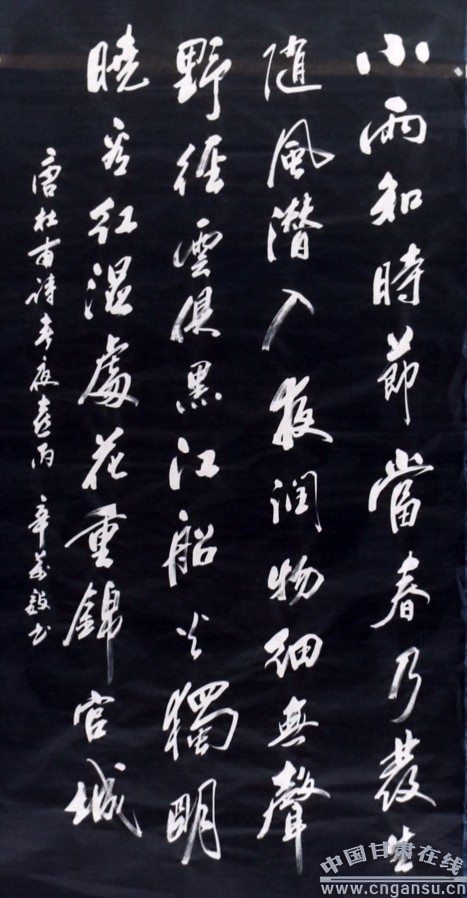 小雨知時節當春乃發生
随風潜入夜润物细無聲
野徑雲俱黑江船火獨明
曉看红湿處花重錦官城
唐杜甫诗春夜喜雨 辛书
中国甘肃在线
www.cngansu.cn